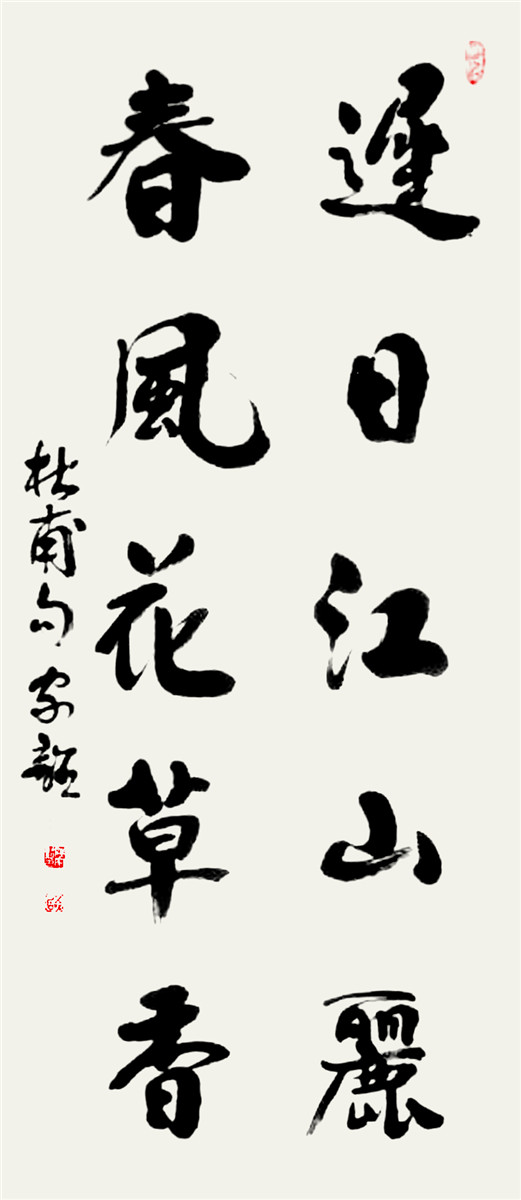 遲日江山麗
春風花草香
杜甫句家韶